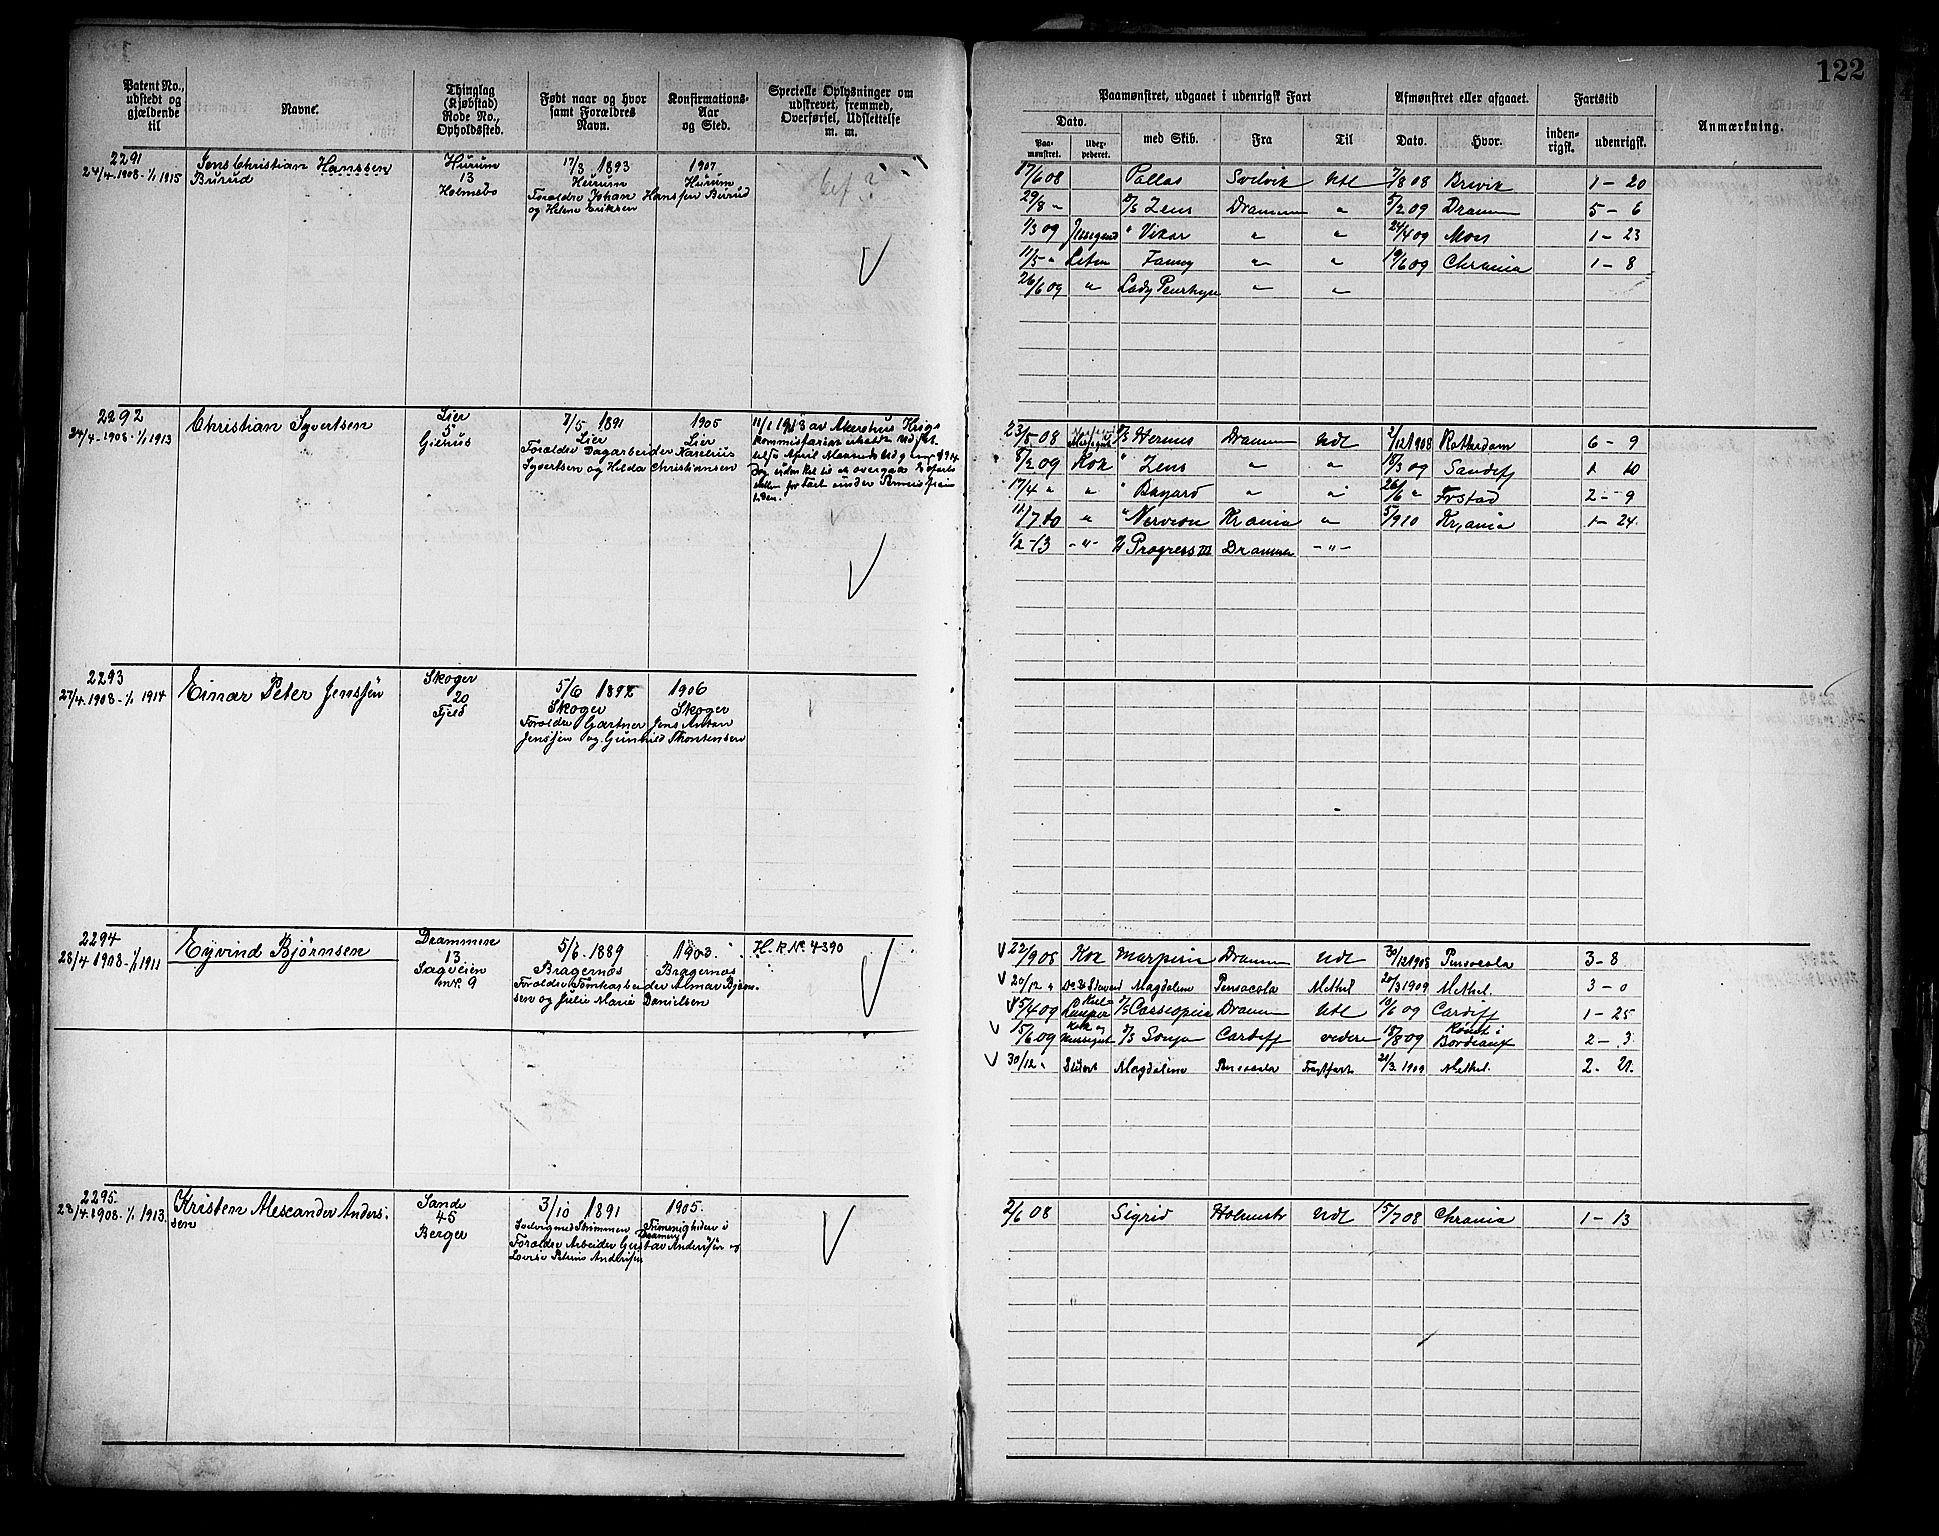 122
Patent No., udstedt og gjældende til
Navne.
Thinglag (Kjøbstad) Rode No., Opholdssted.
Født naar og hvor samt Forældres Navn.
Konfirmations-Aar og Sted.
Specielle Oplysninger om udskrevet, fremmed, Overførsel, Udslettelse m. m.
Paamønstret, udgaaet i udenrigsk Fart
Dato.
Paamønstret.
med Skib.
Fra
Til
Afmønstret eller afgaaet.
Dato.
Hvor.
Fartstid
indenrigsk.
udenrigsk.
Anmærkning.
2291
24/4 1908 - 1/1 1915
Jens Christian Hanssen
Burud
Hurum
13
Holmsbo
17/3 1893
Hurum
Forældre Johan Hanssen Burud
og Helene Eriksen
1907
Hurum
17/6 08 Pallas Svelvik Udl 7/8 08 Brevik 1 - 20
29/8 " D/S Zeus Drammen " 5/2 09 Dramm 5 - 6
1/3 09 " Vikar " " 24/4 09 Moss 1 - 23
11/5 " Fanny " " 19/6 09 Chrania 1 - 8
26/6 09 " Lady Penrhyn " "
2292
24/4 1908 - 1/1 1913
Christian Syvertsen
Lier
5
Gilhus
7/5 1891
Lier
Forældre Dagarbeider Karelius
Syvertsen og Hilda Christiansen
1905
Lier
11/1 1913 av Akershus Krigs
kommissariat
23/5 08 D/S Hermes Dramm Udl 2/12 1908 Rotterdam 6 - 9
8/2 09 Kok " Zeus " " 18/3 09 Sandefj 1 10
17/4 " " " Bayard " " 26/6 " Frstad 2 - 9
12/7 10 " " Krania " 5/9 10 Kr,ania 1 - 24
1/2 - 13 - " - Progress III Drammen - " -
2293
27/4 1908 - 1/1 1914
Einar Peter Jenssen
Skoger
20
Fjeld
5/6 1892
Skoger
Forældre Gartner Jens Anton
Jenssen og Gunhild Thorstensen
1906
Skoger
2294
28/4 1908 - 1/1 1911
Eyvind Bjørnsen
Drammen
13
Sagveien
nr. 9
1889
Bragernæs
Forældre Tomtearbeider Almar Bjørn-
sen og Julie Marie Danielsen
1903
Bragernæs
H. R. No. 4390
22/9 08 Kok Dramm Udl 30/12 1908 Pensacola 3 - 8
20/12 " Magdalene Pensacola Methil 20/3 1909 Methil. 3 - 0
5/4 09 D/S Cassiopeia Dramm Udl 10/6 09 Cardiff 1 - 25
15/6 09 Kok og D/S Sonja Cardiff videre 18/8 09 Rømt i Bordeaux 2 - 3
30/12 " Magdalene Pensacola Fragtfart 21/3 1909 Methil. 2 - 21
2295
28/4 1908 - 1/1 1913
Kristen Alexander Anders-
sen
Sande
45
Berger
3/10 1891
Forældre Arbeider Gustav Anderssen og
1905.
2/6 08 Sigrid Holmestr Udl 15/7 08 Chrania 1 - 13